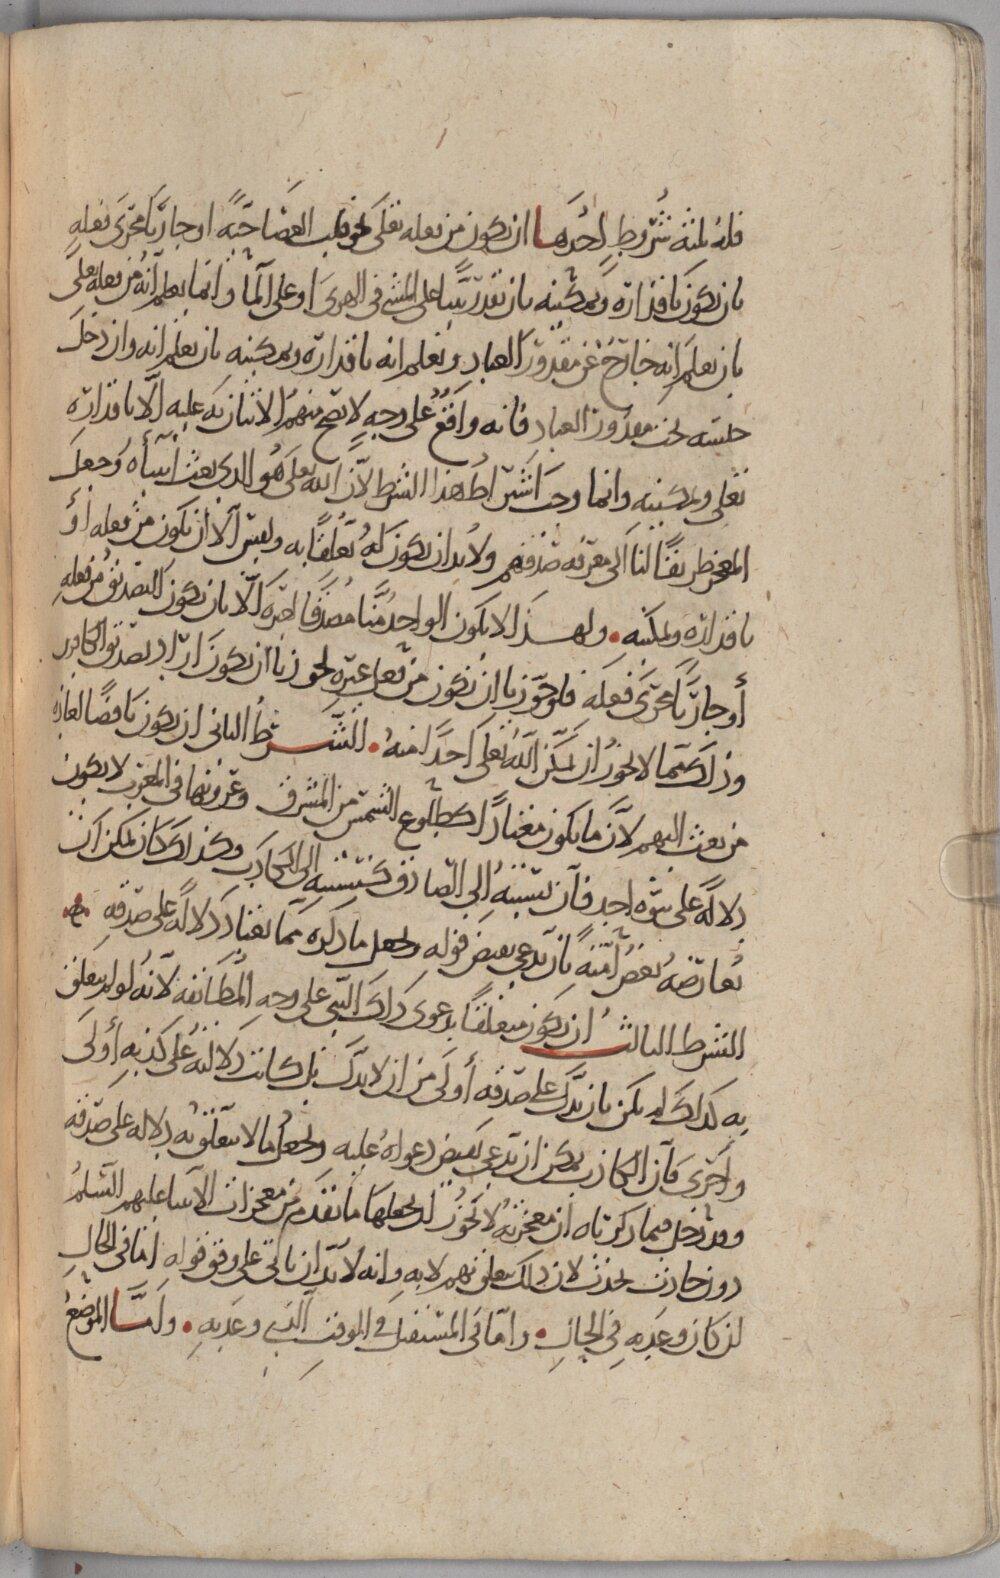 فله ثلثة شروط احدها ان يكون من فعله تعلى نحو قلب العصا حيّة او جاريًا مجرى فعله
بان يكون باقداره وتمكينه بان يقدر نبيا على المشي في الهوى او على الما وانما يعلم انه من فعله تعلى
بان يعلم انه خارج عن مقدور العباد ويعلم انه باقداره وتمكينه بان يعلم انه وان دخل
جنسه تحت مقدور العباد فانه واقع على وجه لا يصح منهم الاتيان به عليه الّا باقداره
تعلى وتمكينه وانما وجب اشتراط هذا الشرط لان الله تعلى هو الذي بعث انبيأه وجعل
المعجز طريقًا لنا الى معرفة صدقهم ولا بد ان يكون له تعلّقًا به وليس الّا ان يكون من فعله أو
باقداره وتمكينه • ولهذا لا يكون الواحد منّا مصدقًا لغيره الّا بان يكون التصديق من فعله
أو جاريًا مجرى فعله فلو جوّزنا ان يكون من فعل غيره لجوزنا ان يكون اراد تصديق الكاذب
وذلك مما لا يجوز ان يمكّن الله تعلى احدًا منه • الشرط الثاني ان يكون ناقضًا لعادة
من بعث اليهم لأن ما يكون معتادًا كطلوع الشمس من المشرق وغروبها في المغرب لا يكون
دلالة على نبوّة احد فان نسبته الى الصادق كنسبته الى الكاذب وكذلك كان يمكن ان
يعارضه بعض امّته بان يدعي نقيض قوله ويجعل ما ذكره مما يعتاد دلالة على صدقه
الشرط الثالث ان يكون متعلقًا بدعوى ذلك النبي على وجه المطابقة لانه لو لم يتعلق
به كذلك لم يكن بان يدل على صدقه أولى من ان لا يدل بل كانت دلالته على كذبه أولى
وأحرى فان الكاذب يمكن ان يدعي نقيض دعواه عليه ويجعل ما لا يتعلق به دلالة على صدقه
وقد دخل فيما ذكرناه ان معجزته لا يجوز ان يجعلها ما تقدم من معجزات الانبيا عليهم السلم
دون حادث يحدث لان ذلك يتعلق بهم لا به وانه لا بد ان ياتي على وفق قوله اما في الحال
ان كان وعد به في الحال • واما في المستقبل في الوقت الذي وعد به • وأما الموضع